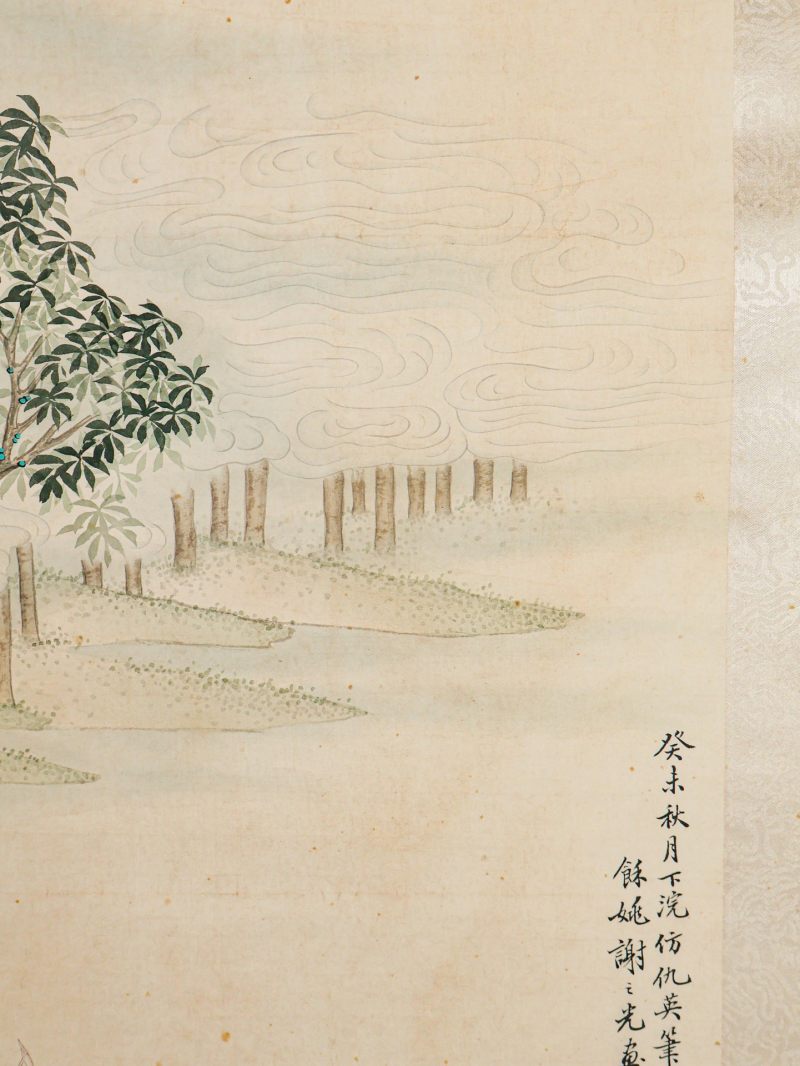 癸未秋月下浣仿仇英筆
餘姚謝之光畫